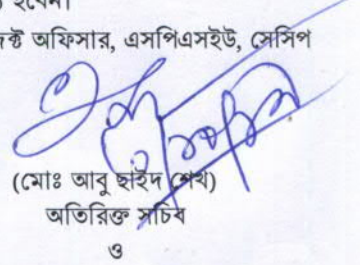 হবেন।
অফিসার, এসপিএসইউ, সেসিপ
(মোঃ আবু ছাইদ শেখ)
অতিরিক্ত সচিব
ও